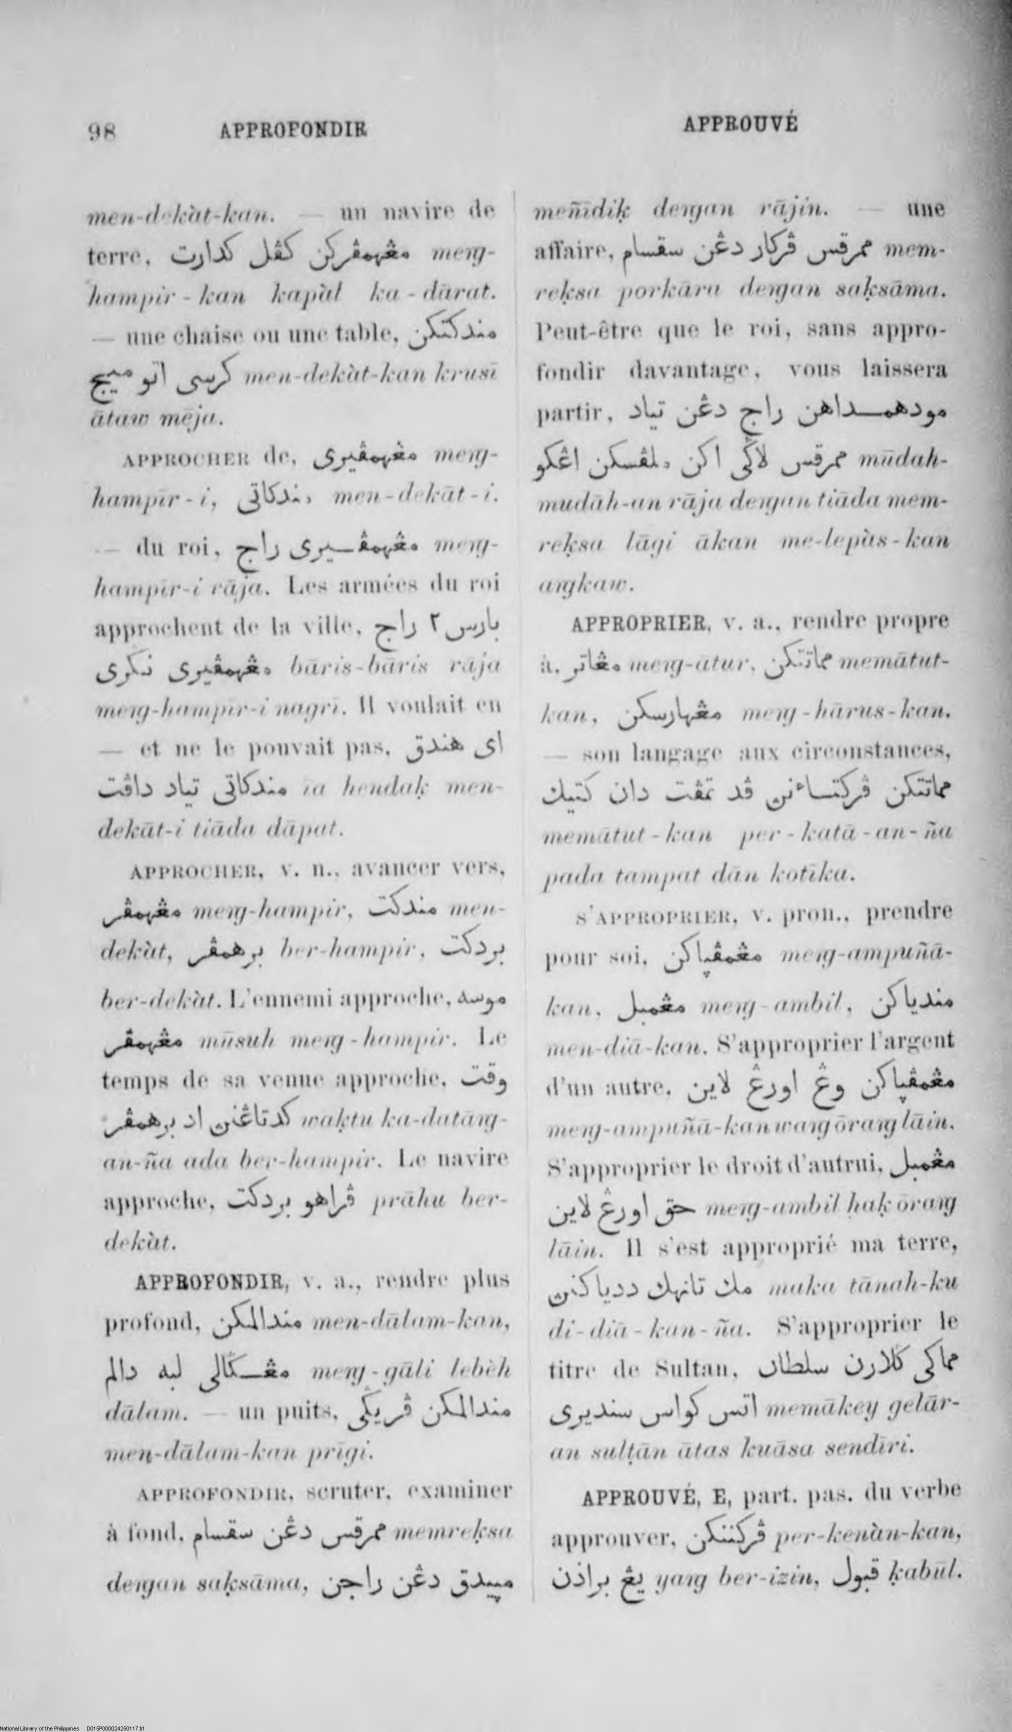 98 APPROFONDIR APPROUVÉ
men-dekàt-kan. — un navire de
terre, مڠهمڤرکن کڤل کدارت meng-
hampir-kan kapàl ka-dārat.
— une chaise ou une table, مندکتکن
کرسی اتو میج men-dekàt-kan krusī
ātaw mēja.
APPROCHER de, مڠهمڤیری meng-
hampīr-i, مندکاتی men-dekāt-i.
— du roi, مڠهمڤیری راج meng-
hampīr-i rāja. Les armées du roi
approchent de la ville, بارس ٢ راج
مڠهمڤیری نݢری bāris-bāris rāja
meng-hampīr-i nagrī. Il voulait en
— et ne le pouvait pas, ای هندق
مندکاتی تیاد داڤت īa hendaḳ men-
dekāt-i tiāda dāpat.
APPROCHER, v. n., avancer vers,
مڠهمڤر meng-hampir, مندکت men-
dekàt, برهمڤر ber-hampir, بردکت
ber-dekàt. L'ennemi approche, موسه
مڠهمڤر mūsuh meng-hampir. Le
temps de sa venue approche, وقت
کدتاڠنڽ اد برهمڤر waḳtu ka-datāng-
an-ña ada ber-hampir. Le navire
approche, ڤراهو بردکت prāhu ber-
dekàt.
APPROFONDIR, v. a., rendre plus
profond, مندالمکن men-dālam-kan,
مڠݢالی لبه دالم meng-gāli lebèh
dālam. — un puits, مندالمکن ڤریݢی
men-dālam-kan prīgi.
APPROFONDIR, scruter, examiner
à fond, ممرقس دڠن سقسام memreḳsa
dengan saḳsāma, میيدق دڠن راجن
meñīdiḳ dengan rājin. — une
affaire, ممرقس ڤرکار دڠن سقسام mem-
reḳsa porkāra dengan saḳsāma.
Peut-être que le roi, sans appro-
fondir davantage, vous laissera
partir, مودهمداهن راج دڠن تیاد
ممرقس لاݢی اکن ملڤسکن اڠکو mūdah-
mudāh-an rāja dengan tiāda mem-
reḳsa lāgi ākan me-lepàs-kan
angkaw.
APPROPRIER, v. a., rendre propre
à, مڠاتر meng-ātur, مماتتکن memātut-
kan, مڠهارسکن meng-hārus-kan.
— son langage aux circonstances,
مماتتکن ڤرکتاءنڽ ڤد تمڤت دان کتیک
memātut-kan per-katā-an-ña
pada tampat dān kotīka.
S'APPROPRIER, v. pron., prendre
pour soi, مڠمڤڽاکن meng-ampuñā-
kan, مڠمبل meng-ambil, مندیاکن
men-diā-kan. S'approprier l'argent
d'un autre, مڠمڤڽاکن وڠ اورڠ لاین
meng-ampuñā-kan wang ōrang lāin.
S'approprier le droit d'autrui, مڠمبل
حق اورڠ لاین meng-ambil ḥaḳ ōrang
lāin. Il s'est approprié ma terre,
مک تانهک ددیاکنڽ maka tānah-ku
di-diā-kan-ña. S'approprier le
titre de Sultan, مماکی ݢلارن سلطان
اتس کواس سندیری memākey gelār-
an sulṭān ātas kuāsa sendīri.
APPROUVÉ, E, part. pas. du verbe
approuver, ڤرکننکن per-kenàn-kan,
يڠ براذن yang ber-izin, قبول ḳabūl.
National Library of the Philippines